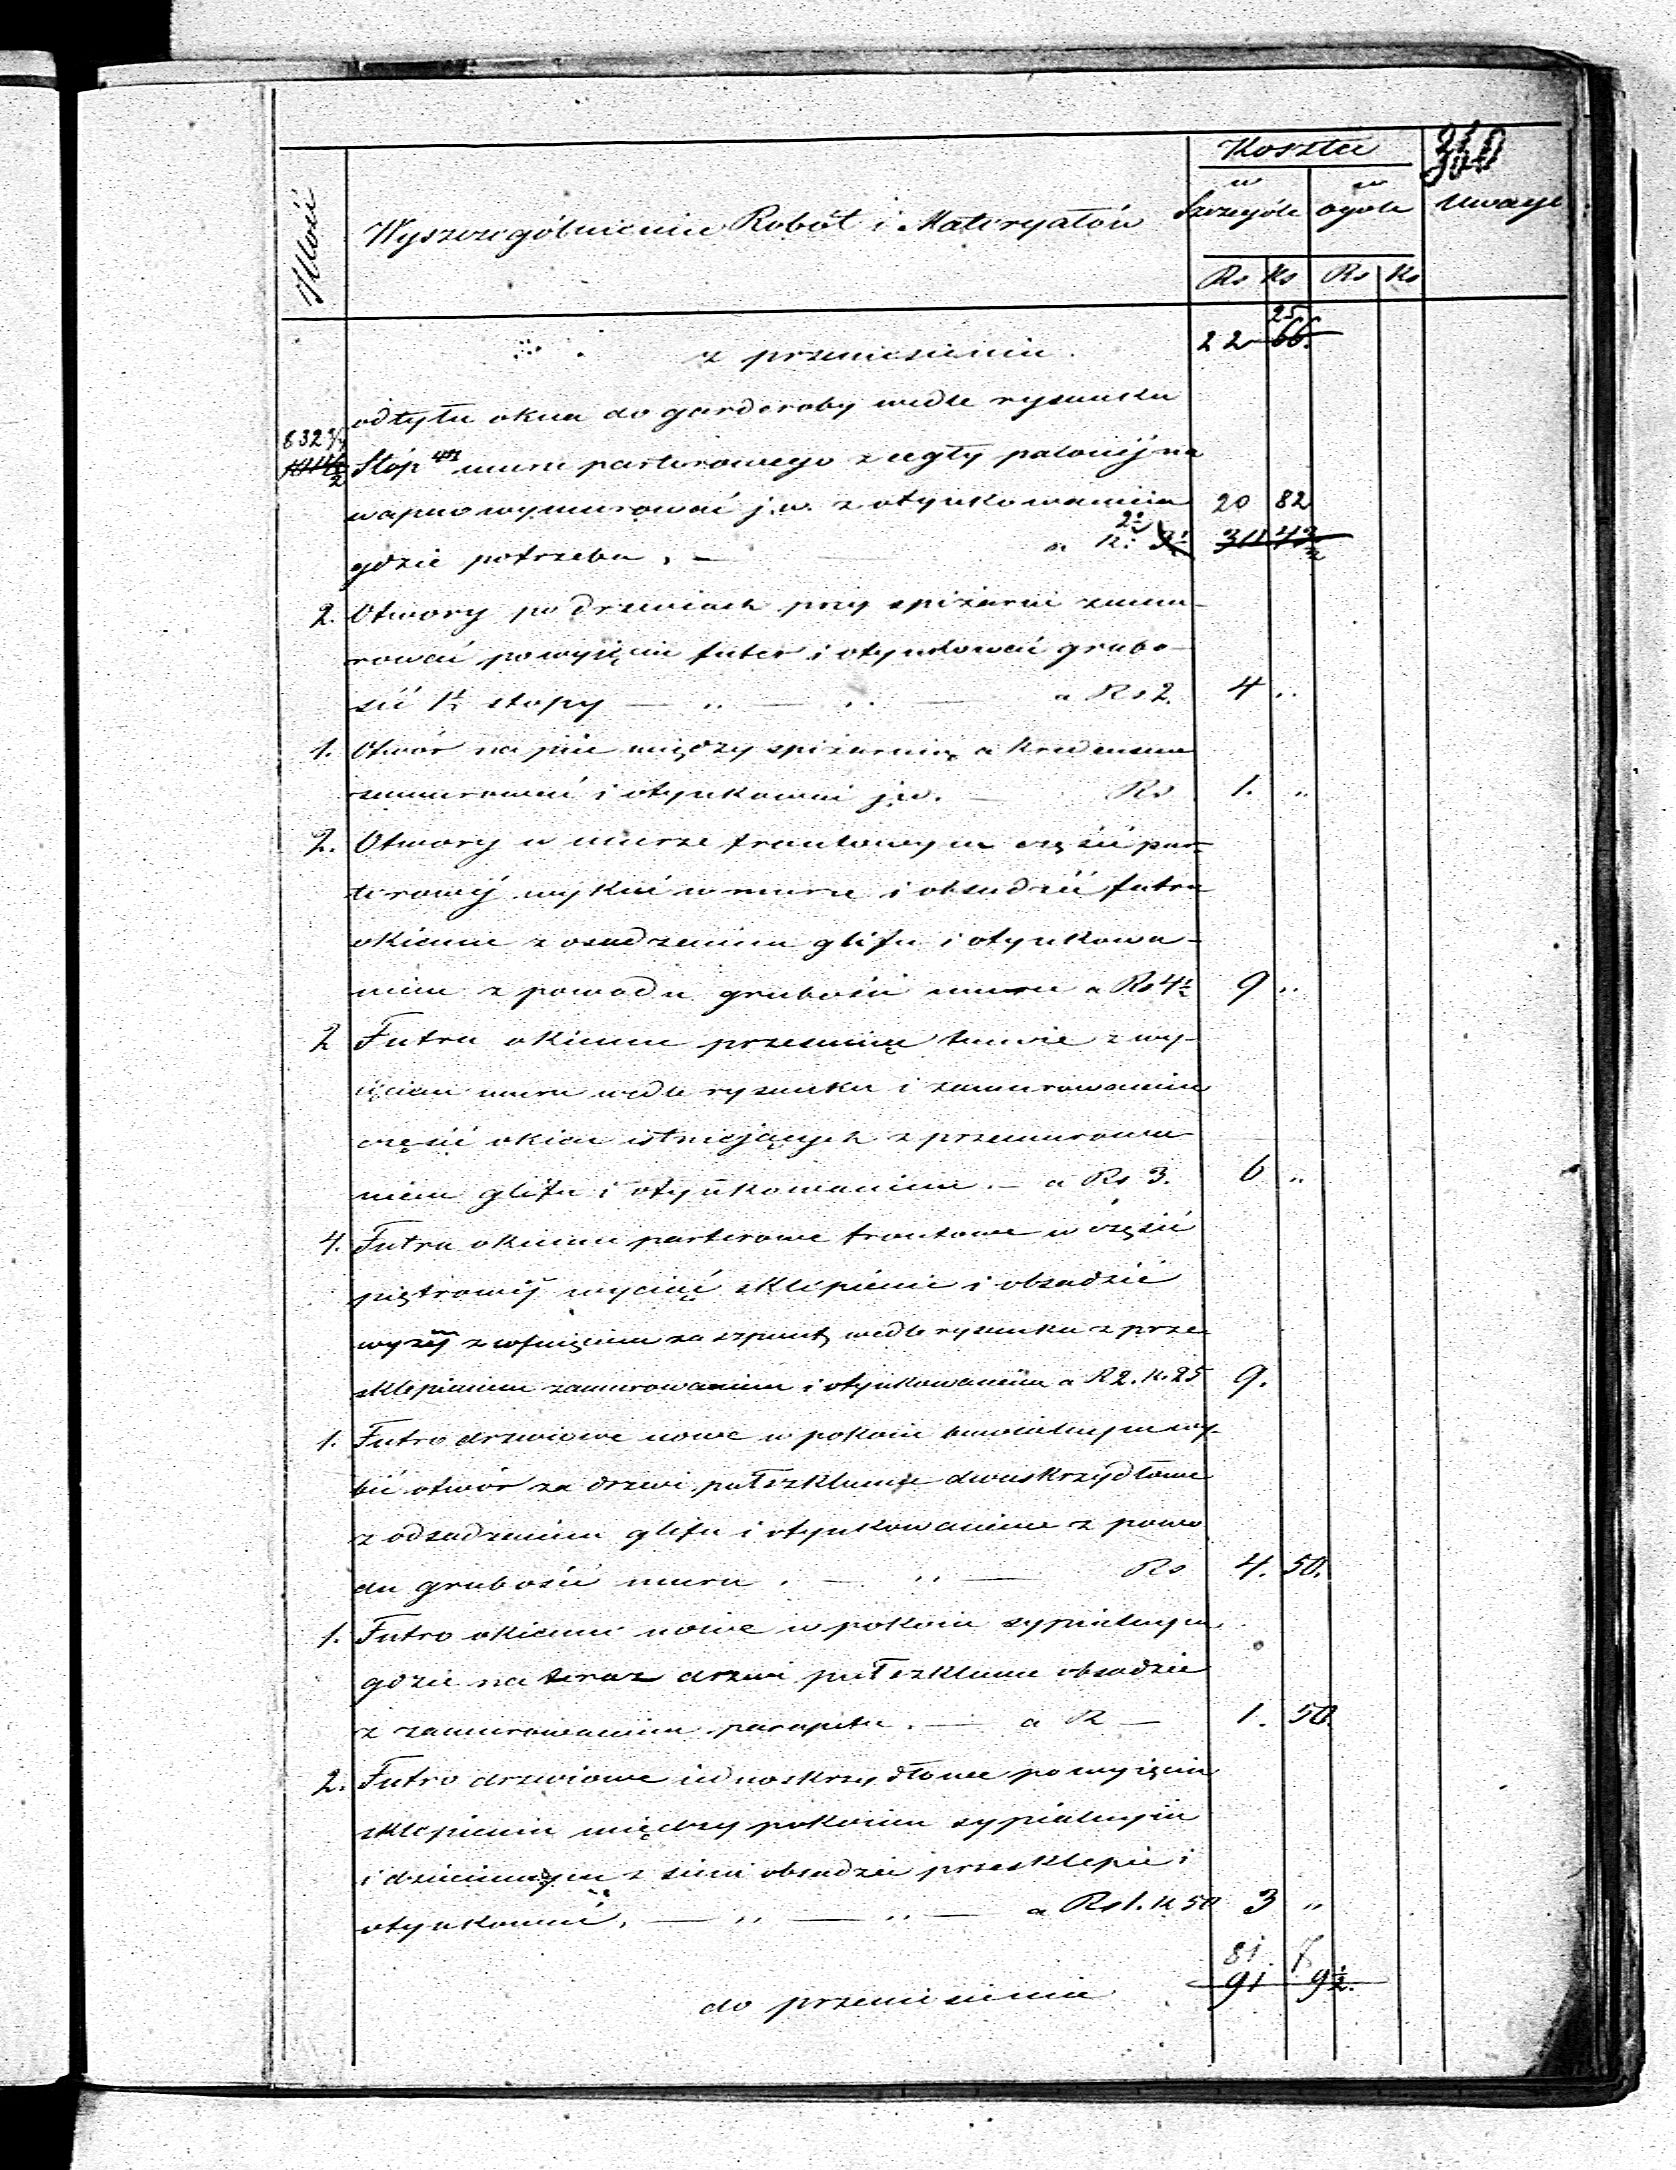 Koszta
Ilość Wyszczególnienie Robót i Materyałów w Szczególe w ogóle Uwagi
Rs Ks Rs Ks
z przeniesienia. 22 25. 66.
od tyłu okna do garderoby wedle rysunku
832 3/4 Stóp muru parterowego z cegły palonéj na
wapno wymurować j.w. z otynkowaniem 20 82
gdzie potrzeba. — a K: 2½
2. Otwory po drzwiach przy spiżarni zamu-
rować po wyjęciu futer i otynkować grubo-
ści 1½ stopy — „ — „ — a Rs 2. 4 „
1. Otwór na piec między spiżarnią a kredensem
zamurować i otynkować j.w. — Rs 1. „
2. Otwory w murze frontowym części par-
terowéj wykuć w murze i obsadzić futra
okienne z osadzeniem glifu i otynkowa-
niem z powodu grubości muru a Rs 4½ 9 „
2 Futra okienne przesunięte z wy-
cięciem muru wedle rysunku i zamurowaniem
części okien istniejących z przemurowa-
niem glifu i otynkowaniem. — a Rs 3. 6 „
4. Futra okienne parterowe frontowe w części
piętrowéj wyciąć sklepienie i obsadzić
wyżéj z wedle rysunku z prze-
sklepieniem zamurowaniem i otynkowaniem a R 2. K. 25 9.
1. Futro drzwiowe nowe w pokoju bawialnym wy-
bić otwór za drzwi półszklanne dwuskrzydłowe
z odsadzeniem glifu i otynkowaniem z powo
du grubości muru. — „ — Rs 4. 50.
1. Futro okienne nowe w pokoju sypialnym
gdzie na teraz drzwi półszklanne obsadzić
z zamurowaniem parapetu. — a R — 1. 50
2. Futro drzwiowe jednoskrzydłowe po wyjęciu
sklepienia między pokojem sypialnym
i dziecinnym z sieni obsadzić przesklepić i
otynkować. — „ — „ — a Rs 1. K 50 3 „
81. 7
do przeniesienia 91 9½.